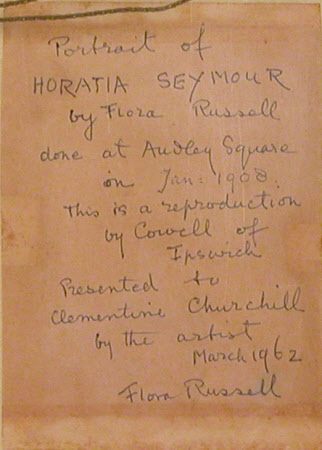 Portrait of
HORATIA SEYMOUR
by Flora Russell
done at Audley Square
on Jan: 1908.
This is a reproduction
by Cowell of
Ipswich
Presented to
Clementine Churchill
by the artist
March 1962
Flora Russell